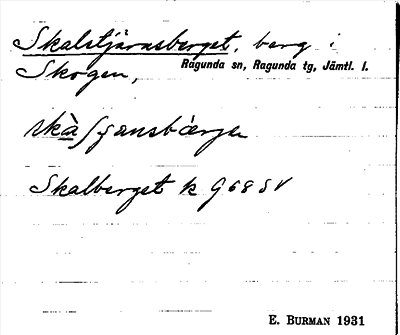 Skalstjärnsberget, berg i
Skogen, Ragunda sn, Ragunda tg, Jämtl. l.
Skalberget k 968 SV
E. BURMAN 1931